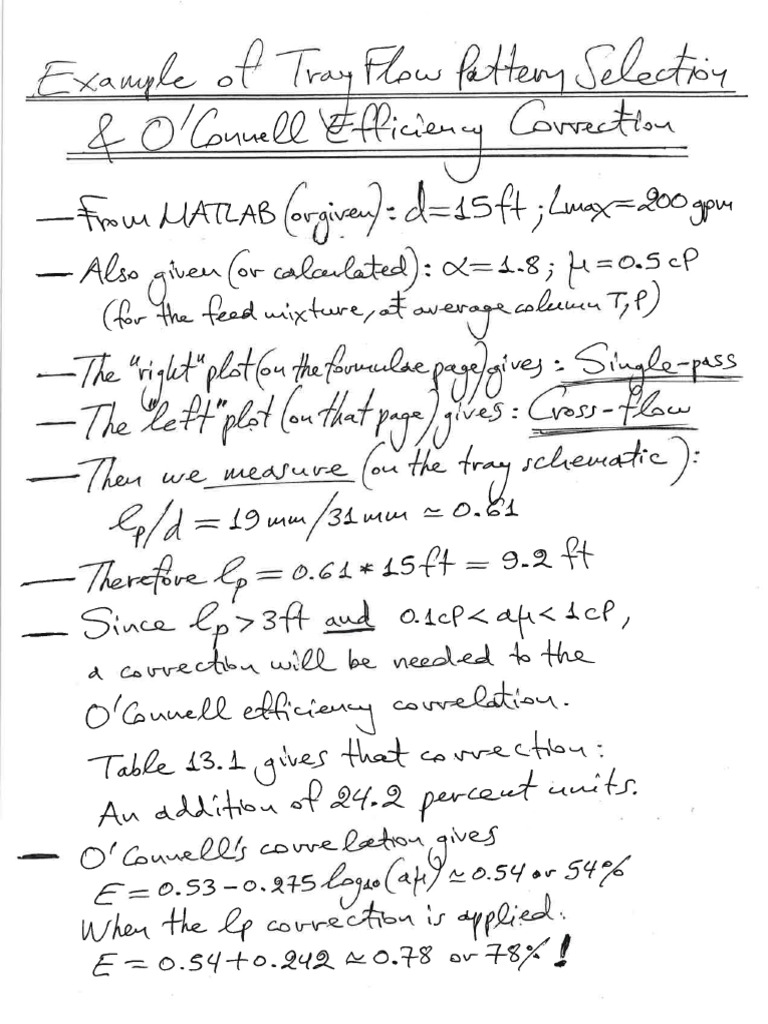 Example of Tray Flow Pattern Selection
& O'Connell Efficiency Correction
— From MATLAB (or given): d=15ft; Lmax=200 gpm
— Also given (or calculated): α=1.8; μ=0.5 cP
(for the feed mixture, at average column T, P)
— The "right" plot (on the formulae page) gives: Single-pass
— The "left" plot (on that page) gives: Cross-flow
— Then we measure (on the tray schematic):
lp/d = 19 mm/31 mm ≃ 0.61
— Therefore lp = 0.61 * 15ft = 9.2 ft
— Since lp > 3ft and 0.1cP < αμ < 1cP,
a correction will be needed to the
O'Connell efficiency correlation.
Table 13.1 gives that correction:
An addition of 24.2 percent units.
— O'Connell's correlation gives
E = 0.53 - 0.275 log10(αμ) ≃ 0.54 or 54%
When the lp correction is applied:
E = 0.54 + 0.242 ≃ 0.78 or 78% !